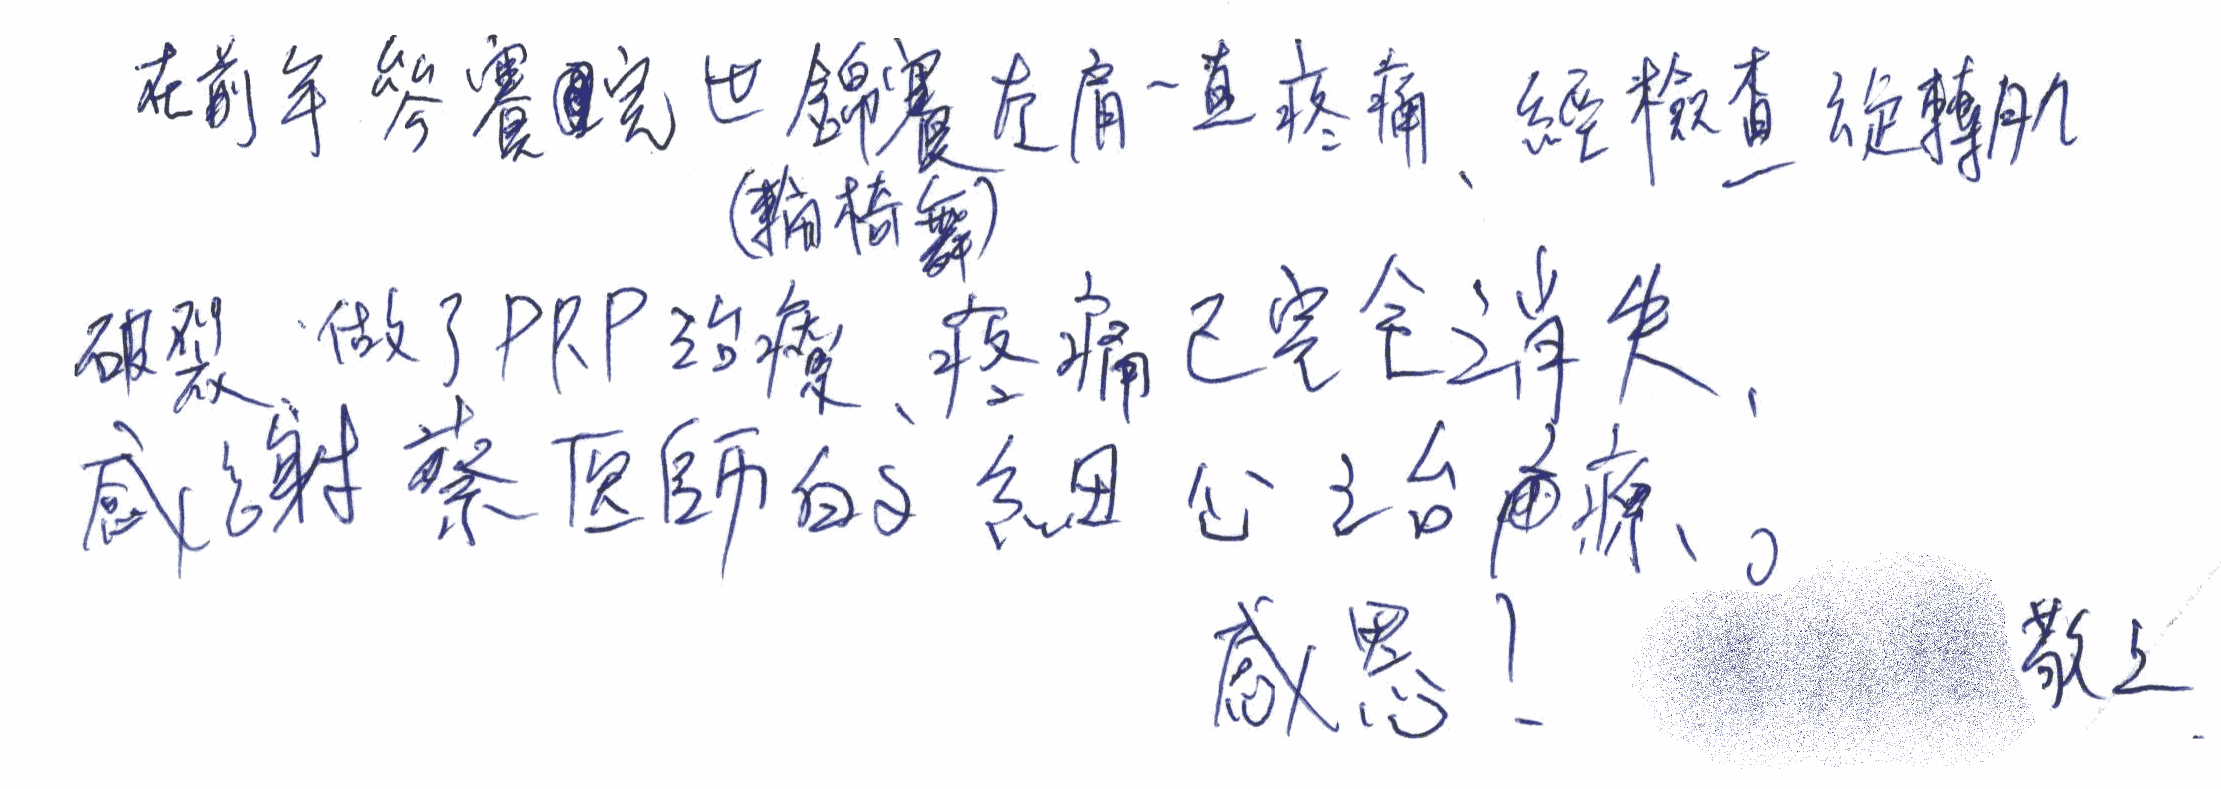 在前年參賽完世錦賽左肩一直疼痛、經檢查旋轉肌
(輪椅舞)
破裂、做了PRP治療、疼痛已完全消失、
感謝蔡医師的細心治療、。
感恩!敬上